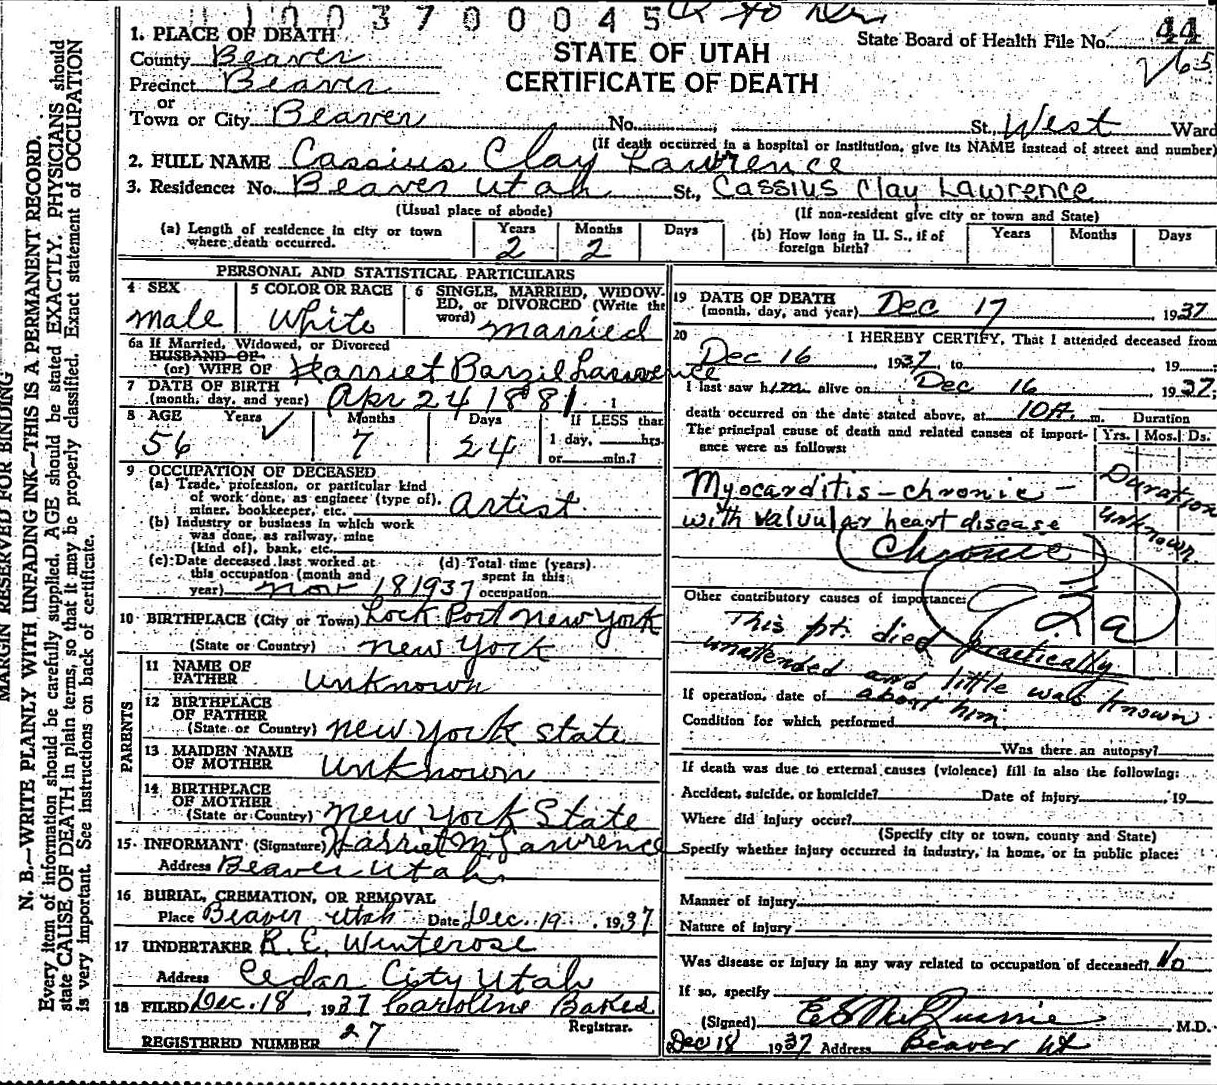 1003700045
1. PLACE OF DEATH
County Beaver
Precinct Beaver
or
Town or City Beaver No. St., West Ward
STATE OF UTAH
CERTIFICATE OF DEATH
State Board of Health File No. 44
(If death occurred in a hospital or institution, give its NAME instead of street and number)
2. FULL NAME Cassius Clay Lawrence
3. Residence: No. Beaver Utah St., Cassius Clay Lawrence
(Usual place of abode) (If non-resident give city or town and State)
(a) Length of residence in city or town where death occurred. Years 2 Months 2 Days
(b) How long in U. S., if of foreign birth? Years Months Days
PERSONAL AND STATISTICAL PARTICULARS
4 SEX Male
5 COLOR OR RACE White
6 SINGLE, MARRIED, WIDOWED, or DIVORCED (Write the word) Married
6a If Married, Widowed, or Divorced
HUSBAND OF
(or) WIFE OF Harriet Lawrence
7 DATE OF BIRTH
(month, day, and year) Apr 24 1881
8 AGE Years 56 Months 7 Days 24 If LESS than
1 day, hrs.
or min.?
9 OCCUPATION OF DECEASED
(a) Trade, profession, or particular kind
of work done, as engineer (type of),
miner, bookkeeper, etc. Artist
(b) Industry or business in which work
was done, as railway, mine
(kind of), bank, etc.
(c) Date deceased last worked at
this occupation (month and
year) Nov 18 1937
(d) Total time (years)
spent in this
occupation
10 BIRTHPLACE (City or Town) Lock Port New York
(State or Country) New York
PARENTS
11 NAME OF
FATHER Unknown
12 BIRTHPLACE
OF FATHER
(State or Country) New York State
13 MAIDEN NAME
OF MOTHER Unknown
14 BIRTHPLACE
OF MOTHER
(State or Country) New York State
15. INFORMANT (Signature) Harriet M Lawrence
Address Beaver Utah
16 BURIAL, CREMATION, OR REMOVAL
Place Beaver Utah Date Dec. 19 1937
17 UNDERTAKER R. E. Winterose
Address Cedar City Utah
18 FILED Dec. 18, 1937 Caroline Baked
Registrar.
REGISTERED NUMBER 27
19 DATE OF DEATH
(month, day, and year) Dec 17 1937
20 I HEREBY CERTIFY, That I attended deceased from
Dec 16, 1937 to 19
I last saw him alive on Dec 16 1937;
death occurred on the date stated above, at 10A. m.
The principal cause of death and related causes of importance were as follows:
Duration
Yrs. Mos. Ds.
Myocarditis - chronic - Duration
with valvular heart disease unknown.
(Chronic)
92a
Other contributory causes of importance:
This pt. died practically
unattended and little was known
about him
If operation, date of
Condition for which performed
Was there an autopsy?
If death was due to external causes (violence) fill in also the following:
Accident, suicide, or homicide? Date of injury 19
Where did injury occur?
(Specify city or town, county and State)
Specify whether injury occurred in industry, in home, or in public place:
Manner of injury
Nature of injury
Was disease or injury in any way related to occupation of deceased? No
If so, specify
(Signed) M.D.
Dec 18 1937 Address Beaver Ut
MARGIN RESERVED FOR BINDING
N. B.—WRITE PLAINLY WITH UNFADING INK—THIS IS A PERMANENT RECORD.
Every item of information should be carefully supplied. AGE should be stated EXACTLY. PHYSICIANS should
state CAUSE OF DEATH in plain terms, so that it may be properly classified. Exact statement of OCCUPATION
is very important. See instructions on back of certificate.